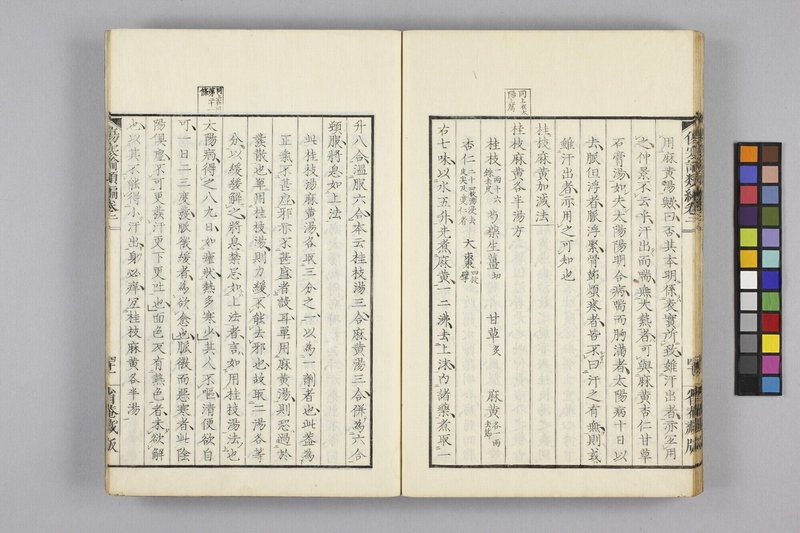 用麻黄湯歟曰否其本明係表實所致雖汗出者亦宜用
之仲景不云乎汗出而喘無大熱者可與麻黄杏仁甘草
石膏湯如夫太陽陽明合病喘而胸滿者太陽病十日以
去脈但浮者脈浮緊骨節煩寒者皆不曰汗之有無則或
雖汗出者亦用之可知也
桂枝麻黄加減法
桂枝麻黄各半湯方
桂枝 一兩十六銖去皮 芍藥生薑切 甘草炙 麻黄各一兩去節
杏仁 二十四枚 大棗四枚擘
右七味以水五升先煮麻黄一二沸去上沫内諸藥煮取一
升八合溫服六合本云桂枝湯三合麻黄湯三合併為六合
頓服將息如上法
此桂枝湯麻黄湯各取三分之一以為一劑者也蓋為
正氣不甚虚邪亦不甚盛者設耳單用麻黄湯則恐過於
發散也單用桂枝湯則力緩不能去邪也故取二湯各等
分以緩緩解之將息禁忌如上法者言如用桂枝湯法也
太陽病得之八九日如瘧狀熱多寒少其人不嘔清便欲自
可一日二三度發脈微緩者為欲愈也脈微而惡寒者此陰
陽俱虚不可更發汗更下更吐也面色反有熱色者未欲解
也以其不能得小汗出身必痒宜桂枝麻黄各半湯
傷寒論類編卷二
省菴藏版